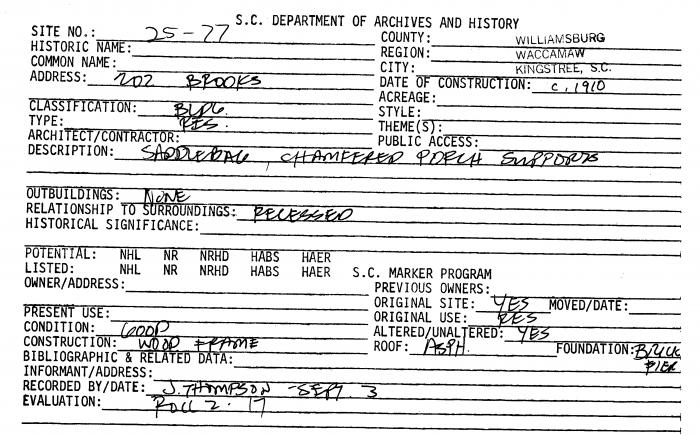 S.C. DEPARTMENT OF ARCHIVES AND HISTORY
SITE NO.: 25-77
COUNTY: WILLIAMSBURG
HISTORIC NAME:
REGION: WACCAMAW
COMMON NAME:
CITY: KINGSTREE, S.C.
ADDRESS: 202 BROOKS
DATE OF CONSTRUCTION: c. 1910
ACREAGE:
CLASSIFICATION: BLDG.
STYLE:
TYPE: RES.
THEME(S):
ARCHITECT/CONTRACTOR:
PUBLIC ACCESS:
DESCRIPTION: SADDLEBAG, CHAMFERED PORCH SUPPORTS
OUTBUILDINGS: NONE
RELATIONSHIP TO SURROUNDINGS: RECESSED
HISTORICAL SIGNIFICANCE:
POTENTIAL: NHL NR NRHD HABS HAER
LISTED: NHL NR NRHD HABS HAER S.C. MARKER PROGRAM
OWNER/ADDRESS:
PREVIOUS OWNERS:
ORIGINAL SITE: YES MOVED/DATE:
PRESENT USE:
ORIGINAL USE: RES
CONDITION: GOOD
ALTERED/UNALTERED: YES
CONSTRUCTION: WOOD FRAME
ROOF: ASPH. FOUNDATION: BRICK PIER
BIBLIOGRAPHIC & RELATED DATA:
INFORMANT/ADDRESS:
RECORDED BY/DATE: J. THOMPSON - SEPT. 3
EVALUATION: ROLL 2. 17